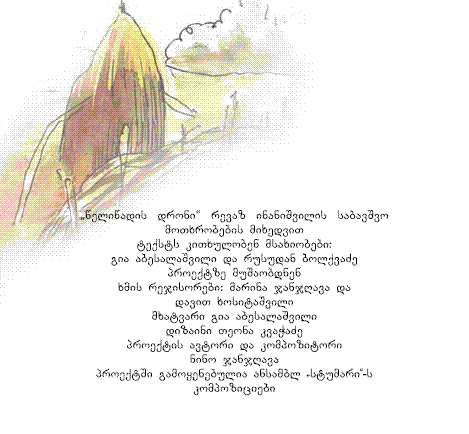 „წელიწადის დრონი“ რევაზ ინანიშვილის საბავშვო
მოთხრობების მიხედვით
ტექსტს კითხულობენ მსახიობები:
გია აბესალაშვილი და რუსუდან ბოლქვაძე
პროექტზე მუშაობდნენ
ხმის რეჟისორები: მარინა ჯანჯღავა და
დავით ხოსიტაშვილი
მხატვარი გია აბესალაშვილი
დიზაინი თეონა კვაჭაძე
პროექტის ავტორი და კომპოზიტორი
ნინო ჯანჯღავა
პროექტში გამოყენებულია ანსამბლ „სტუმარი“-ს
კომპოზიციები